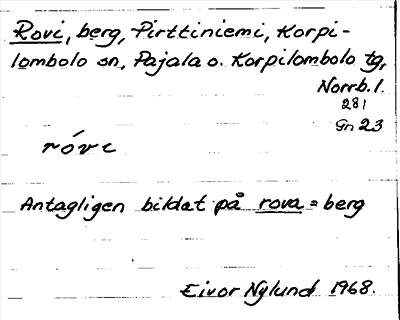 Rovi, berg, Pirttiniemi, Korpi-
lombolo sn, Pajala o. Korpilombolo tg,
Norrb. l.
281
Gn 23
róvi
Antagligen bildat på rova = berg
Eivor Nylund 1968.